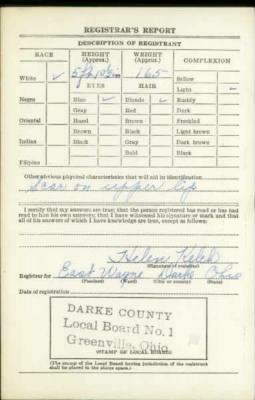 REGISTRAR'S REPORT
DESCRIPTION OF REGISTRANT
RACE HEIGHT (Approx.) WEIGHT (Approx.) COMPLEXION
White ✓ 5 ft 10 in 165 Sallow
EYES HAIR Light ✓
Negro Blue ✓ Blonde ✓ Ruddy
Gray Red Dark
Oriental Hazel Brown Freckled
Brown Black Light brown
Indian Black Gray Dark brown
Bald Black
Filipino
Other obvious physical characteristics that will aid in identification
Scar on upper lip
I certify that my answers are true; that the person registered has read or has had
read to him his own answers; that I have witnessed his signature or mark and that
all of his answers of which I have knowledge are true, except as follows:
Helen
(Signature of registrar)
Registrar for East Wayne Darke Ohio
(Precinct) (Ward) (City or county) (State)
Date of registration
DARKE COUNTY
Local Board No. 1
Greenville, Ohio
(STAMP OF LOCAL BOARD)
(The stamp of the Local Board having jurisdiction of the registrant
shall be placed in the above space.)